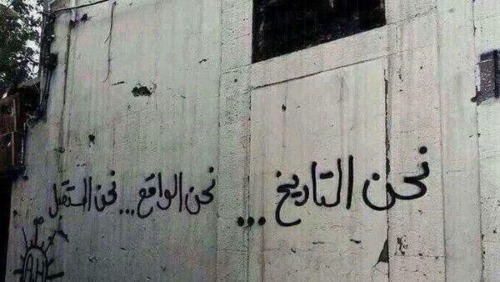 نحن التاريخ ... نحن الواقع ... نحن المستقبل ..
AH